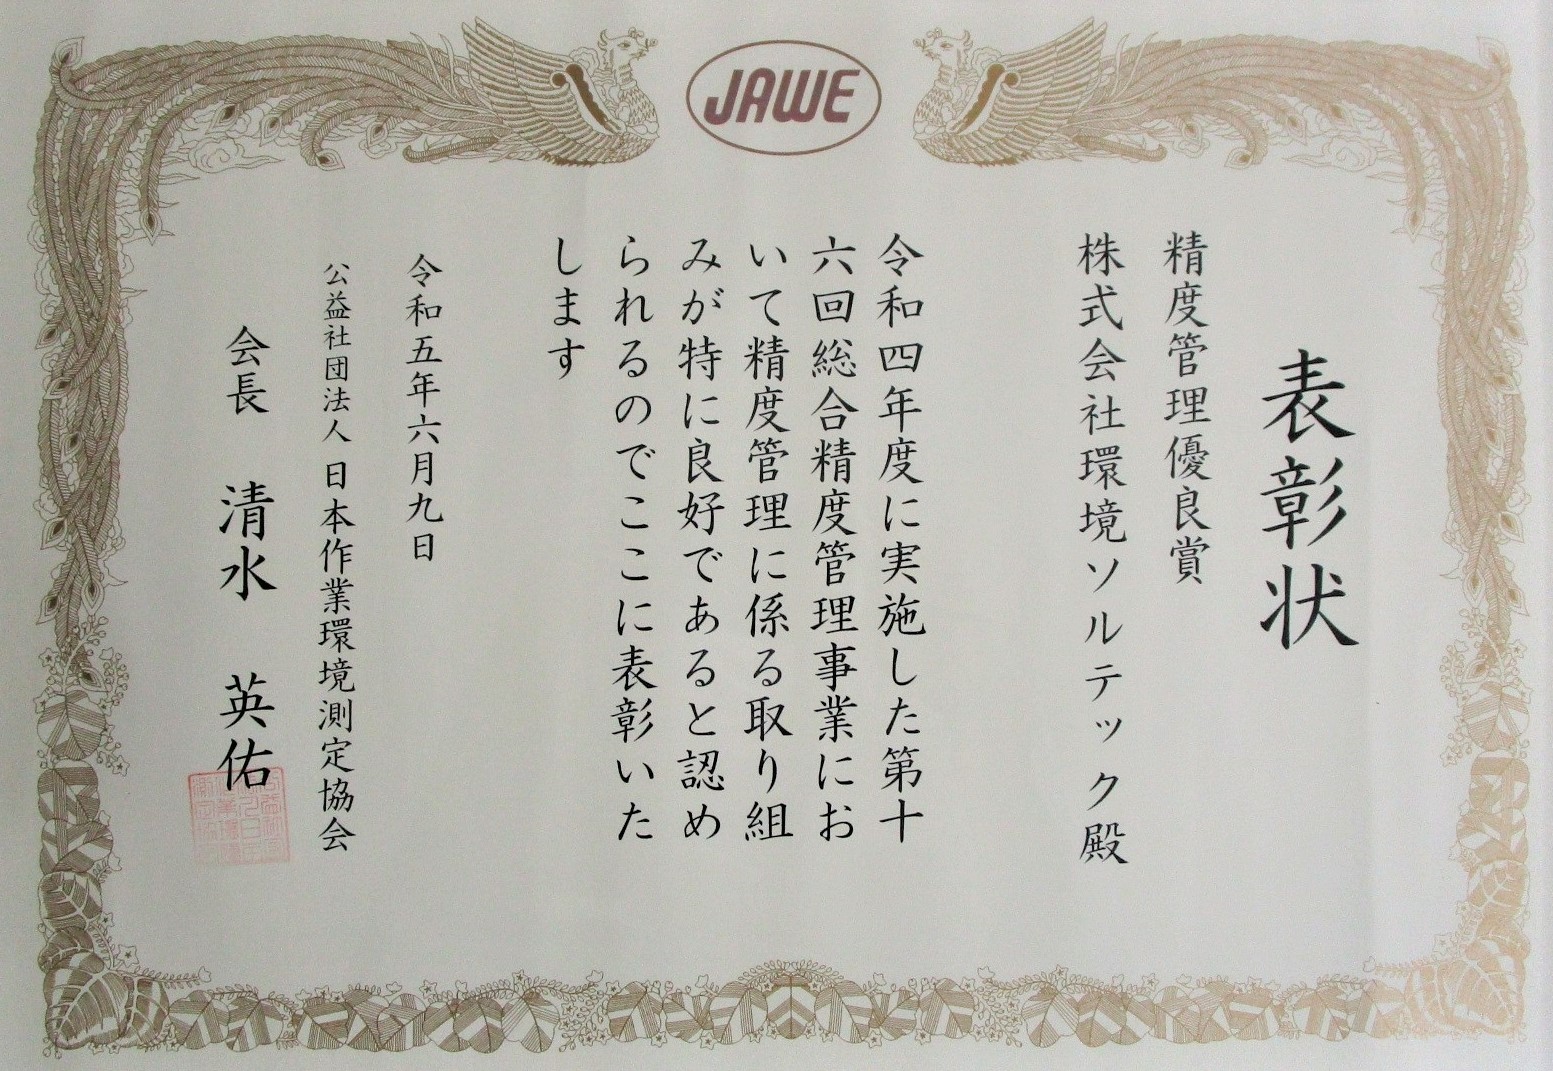 JAWE
表彰状
精度管理優良賞
株式会社環境ソルテック殿
令和四年度に実施した第十
六回総合精度管理事業にお
いて精度管理に係る取り組
みが特に良好であると認め
られるのでここに表彰いた
します
令和五年六月九日
公益社団法人 日本作業環境測定協会
会長 清水 英佑